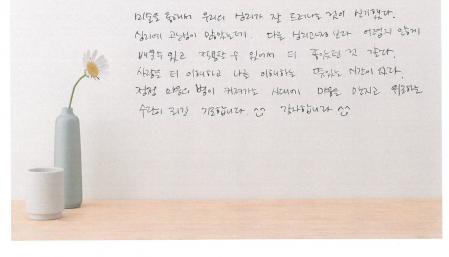 미술을 통해서 우리의 심리가 잘 드러나는 것이 신기했다.
심리에 관심이 많았는데. 다른 심리고나보다 어렵지 않게
배울수 있고 적용할 수 있어서 더 좋았던 것 같다.
사람을 더 이해하고 나를 이해하는 뜻있는 시간이 되다.
점점 마음의 병이 커져가는 시대에 마음을 만지고 위로하는
수단이 되길 기도합니다. 감사합니다